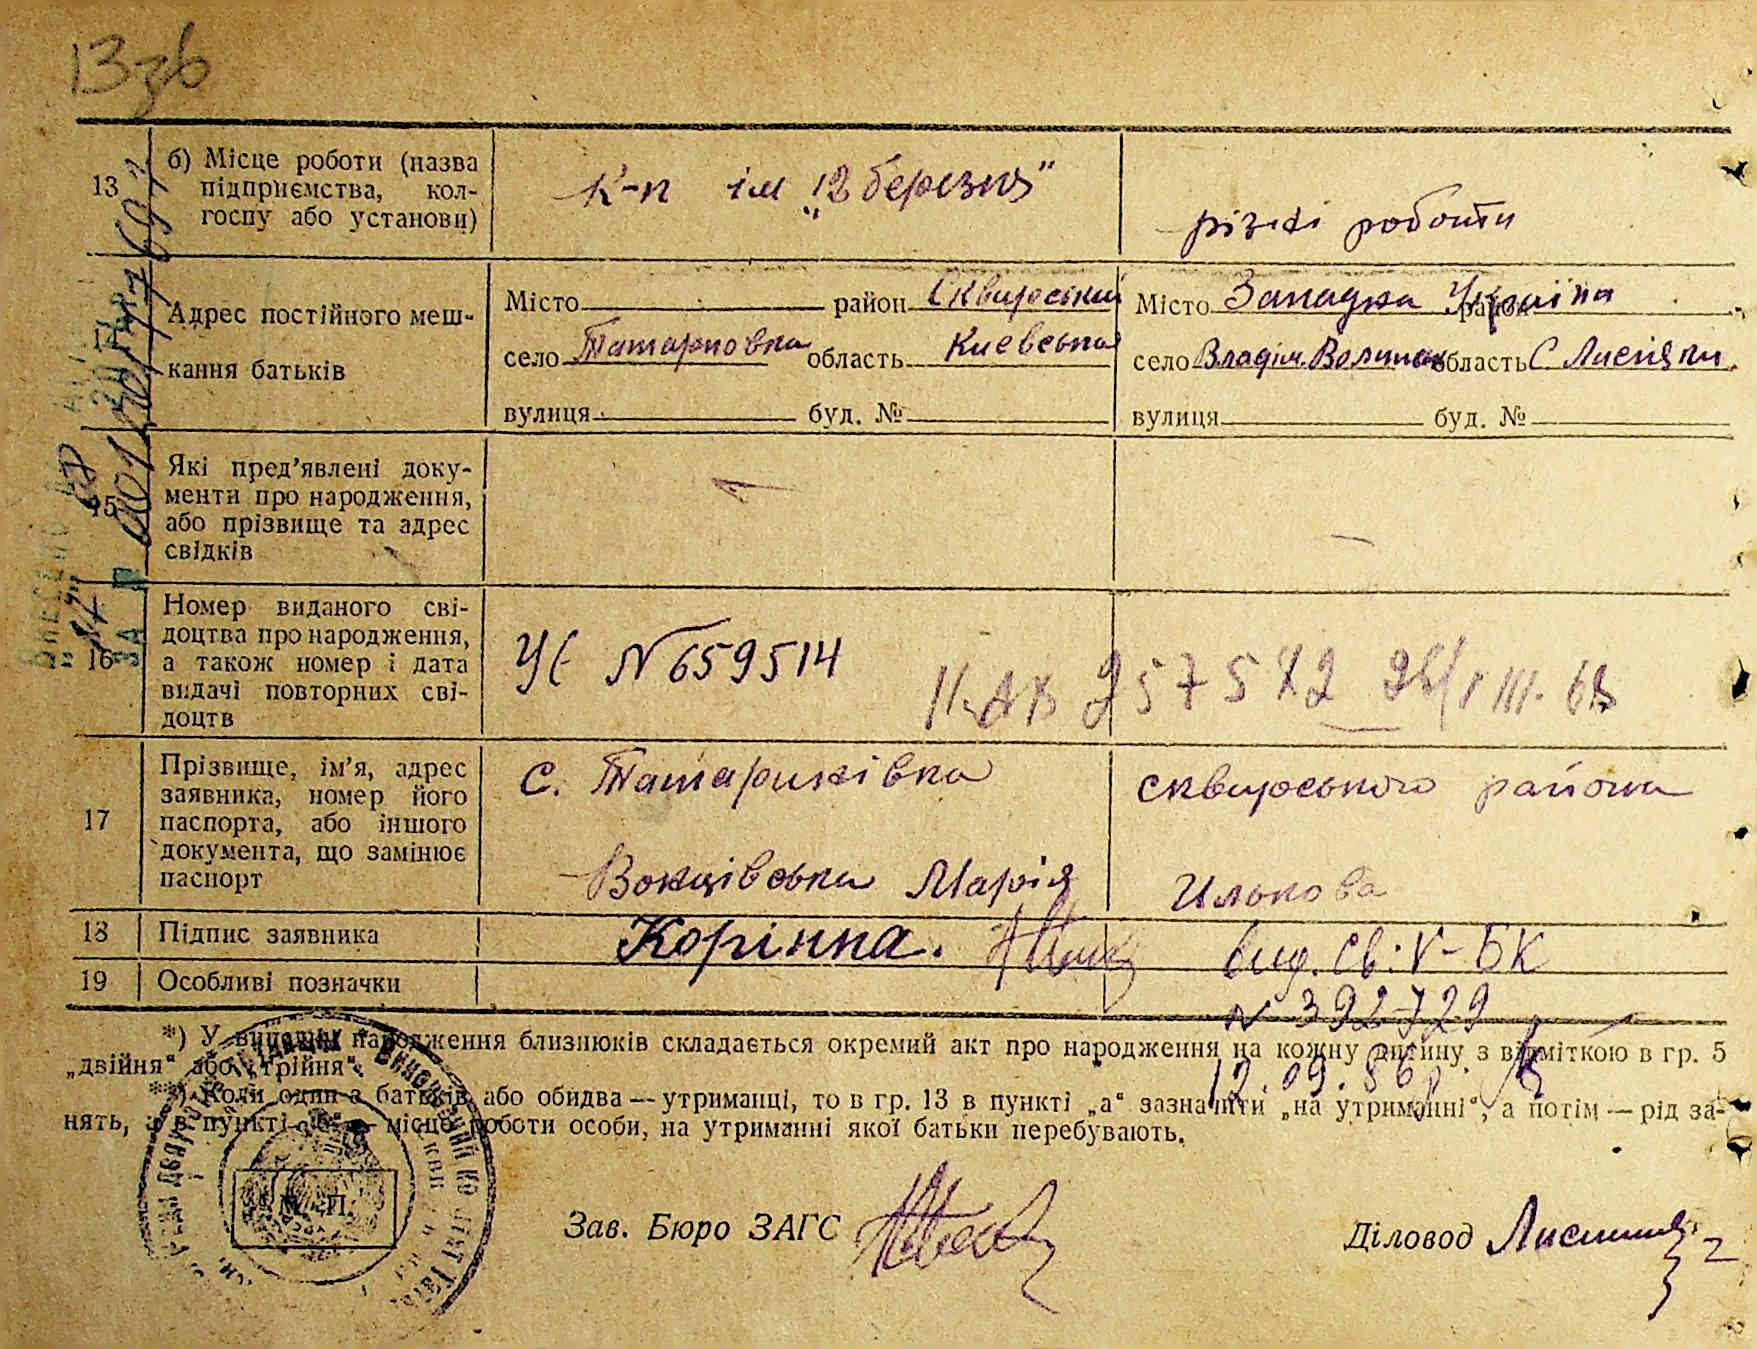 13зв
13
б) Місце роботи (назва
підприємства, кол-
госпу або установи)
К-п ім „12 березня"
різні роботи
Адрес постійного меш-
кання батьків
Місто район Сквирський
село Татариовка область Киевська
вулиця буд. №
Місто Западна Україна район
село Владім. Волинск область С. Лисняки
вулиця буд. №
15
Які пред'явлені доку-
менти про народження,
або прізвище та адрес
свідків
16
Номер виданого сві-
доцтва про народження,
а також номер і дата
видачі повторних сві-
доцтв
УЄ №659514
257572 III. 68
17
Прізвище, ім'я, адрес
заявника, номер його
паспорта, або іншого
документа, що замінює
паспорт
С. Татаринівка сквирського района
Марія Илькова
18 Підпис заявника
Корінна. вид. св: V-БК
19 Особливі позначки
№ 392729
*) У випадку народження близнюків складається окремий акт про народження на кожну дитину з відміткою в гр. 5
„двійня" або „трійня".
12.09.56р.
**) Коли один з батьків, або обидва — утриманці, то в гр. 13 в пункті „а" зазначити „на утриманні", а потім — рід за-
нять, а в пункті „б" — місце роботи особи, на утриманні якої батьки перебувають.
М. П.
Зав. Бюро ЗАГС
Діловод